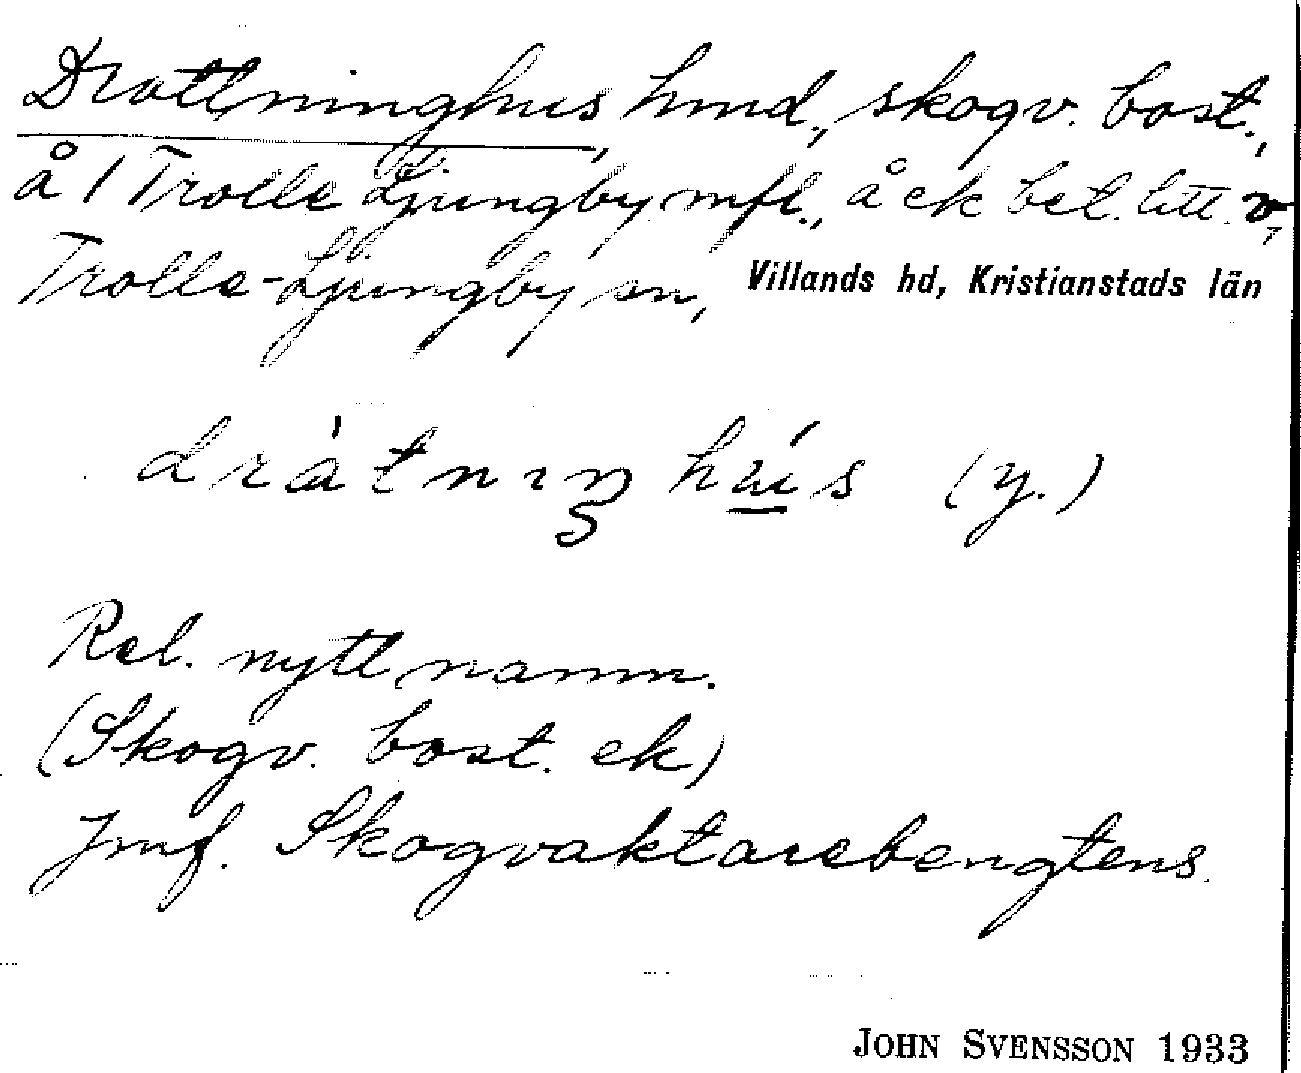 Drottninghus, hmd, skogv. bost.,
å 1 Trolle Ljungby mfl., å ek bet. litt. v,
Trolle-Ljungby sn, Villands hd, Kristianstads län
hús (y.)
Rel. nytt namn.
(Skogv. bost. ek)
Jmf. Skogvaktarebengtens.
JOHN SVENSSON 1933